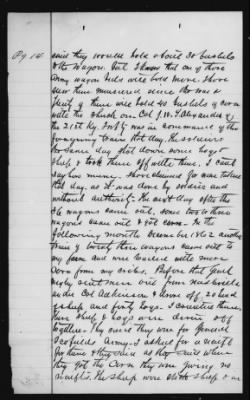 Pg 14.
said they would hold about 30 bushels
to the Wagon. But I know that any of those
Army wagon beds will hold more. I have
seen them measured since the war &
that of them will hold 40 bushels of corn
with the shuck on. Col J. W. Alexander of
the 21st Ky. Infty was in command of this
foraging train that day. The soldiers
the same day shot down some hogs &
sheep & took them off with them. I cant
say how many. I have claimed for none taken
that day, as it was done by soldiers and
without authority. The next day after the
36 wagons came out, some two to three
wagons came out & got corn. In the
following month December 1862 another
train of twenty three wagons came out to
my farm and were loaded with more
corn from my cribs. Before that Genl
Negley sent men out from Nashville
under Col Adkinson & drove off 20 head
of sheep and forty hogs. I counted them
The sheep & hogs were driven off
together. They said they were for General
Scofields Army. I asked for a receipt
for them & they said as they said when
they got the Corn they were giving no
receipts. The sheep were stock sheep &